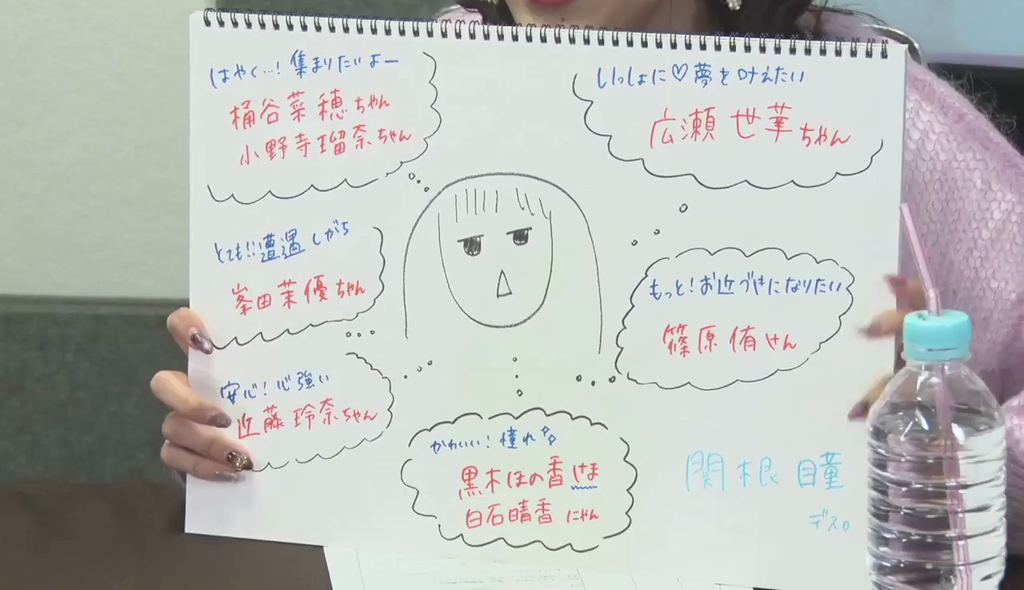 はやく…!集まりたいよー
桶谷菜穂ちゃん
小野寺瑠奈ちゃん
いっしょに♡夢を叶えたい
広瀬世華ちゃん
とても!!遭遇しがち
峯田茉優ちゃん
もっと!お近づきになりたい
篠原侑さん
安心!心強い
近藤玲奈ちゃん
かわいい!憧れ
黒木ほの香さま
白石晴香にゃん
関根瞳
デス。